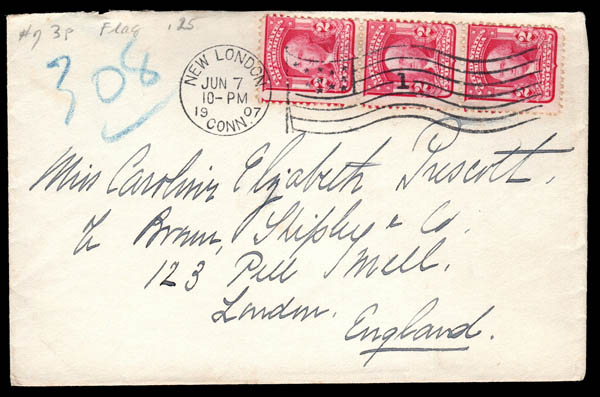 #7 3p Flag .25
308
NEW LONDON,
JUN 7
10-PM
1907
CONN.
1
2 2 2
Miss Caroline Elizabeth Prescott,
Brown, Shipley & Co.
123 Pall Mall.
London.
England.